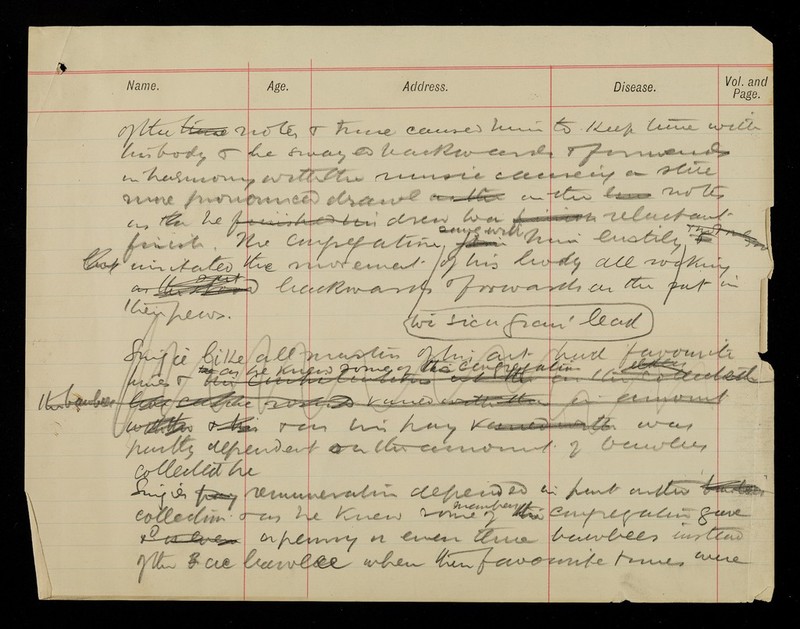 Name. Age. Address. Disease. Vol. and Page.
of the time notes & time caused him to keep time with
his body & he swayed backwards & forwards
in harmony with the music causing a still
more pronounced drawl on the on the notes
as he finished drew to a reluctant
finish. The congregation, sung with him lustily &
imitated the movement of his body all rocking
as backwards & forwards as they sat in
their pews.
lead
like all masters of his art had favourite
tunes & as he knew some of the congregation
varied with the amount
& as his pay varied with was
partly dependent on the amount of bawbees
collected he
pay remuneration depended in part on the
collection & as he knew some of the members congregation gave
a penny or even three bawbees instead
of the ae bawbee when their favourite tunes were